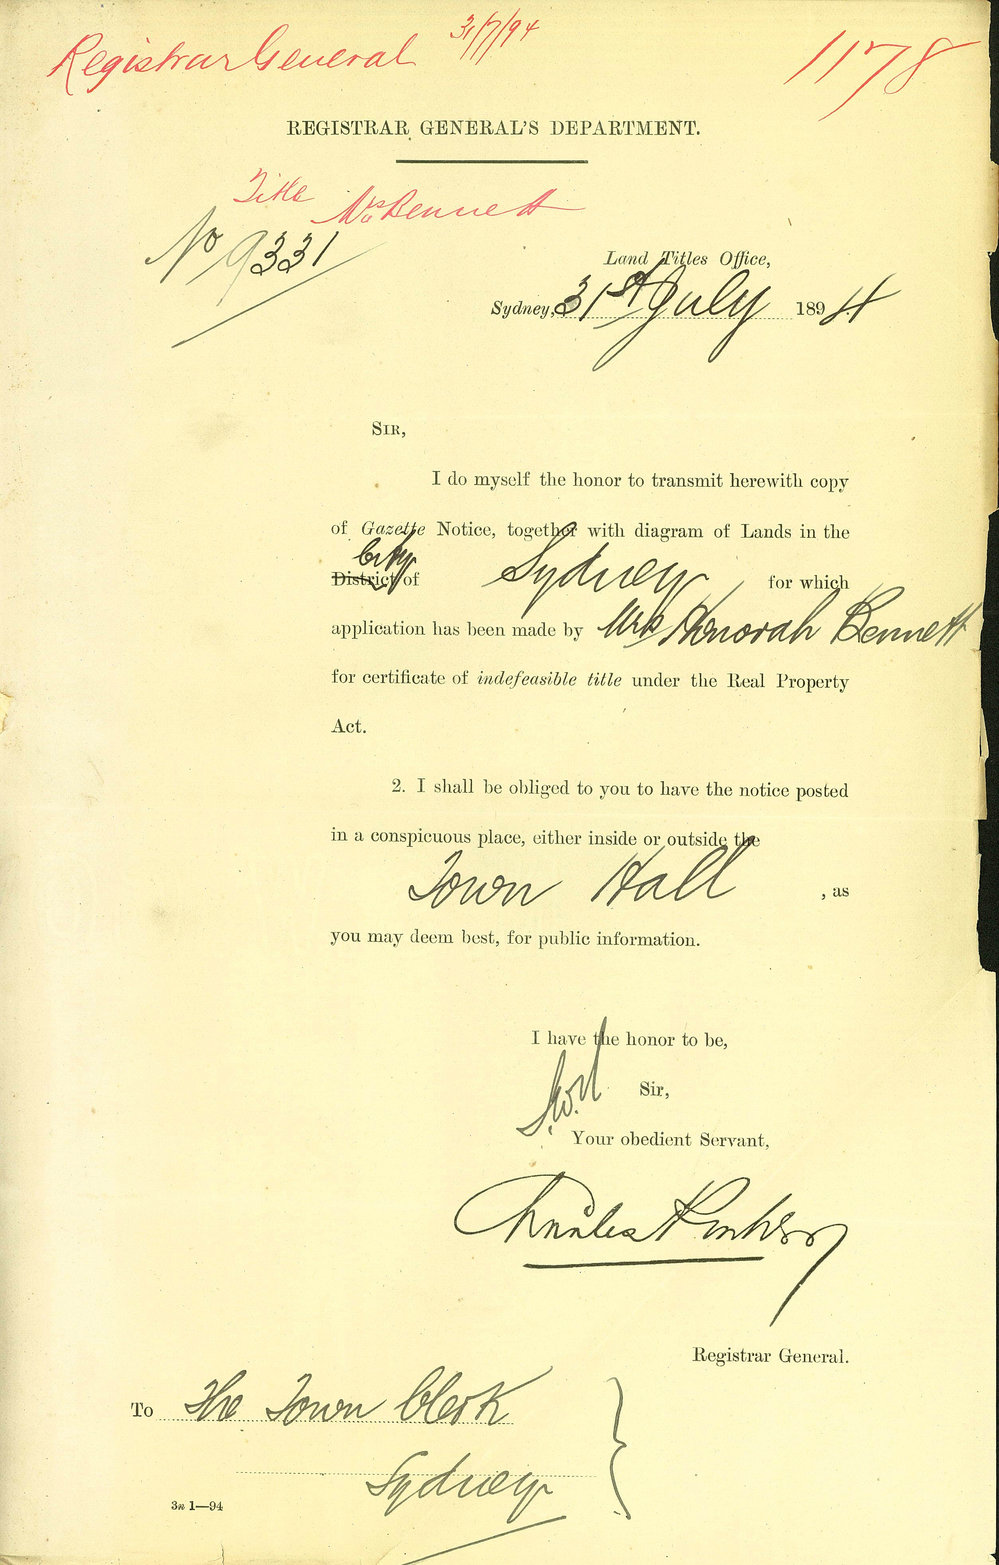 Registrar General 31/7/94
1178
REGISTRAR GENERAL'S DEPARTMENT.
Title Mrs Bennett
No 9331
Land Titles Office,
Sydney, 31st July 1894
SIR,
I do myself the honor to transmit herewith copy
of Gazette Notice, together with diagram of Lands in the
City
District of Sydney for which
application has been made by Mrs Honorah Bennett
for certificate of indefeasible title under the Real Property
Act.
2. I shall be obliged to you to have the notice posted
in a conspicuous place, either inside or outside the
Town Hall, as
you may deem best, for public information.
I have the honor to be,
Sir,
Your obedient Servant,
Charles
Registrar General.
To The Town Clerk
Sydney
3n 1—94